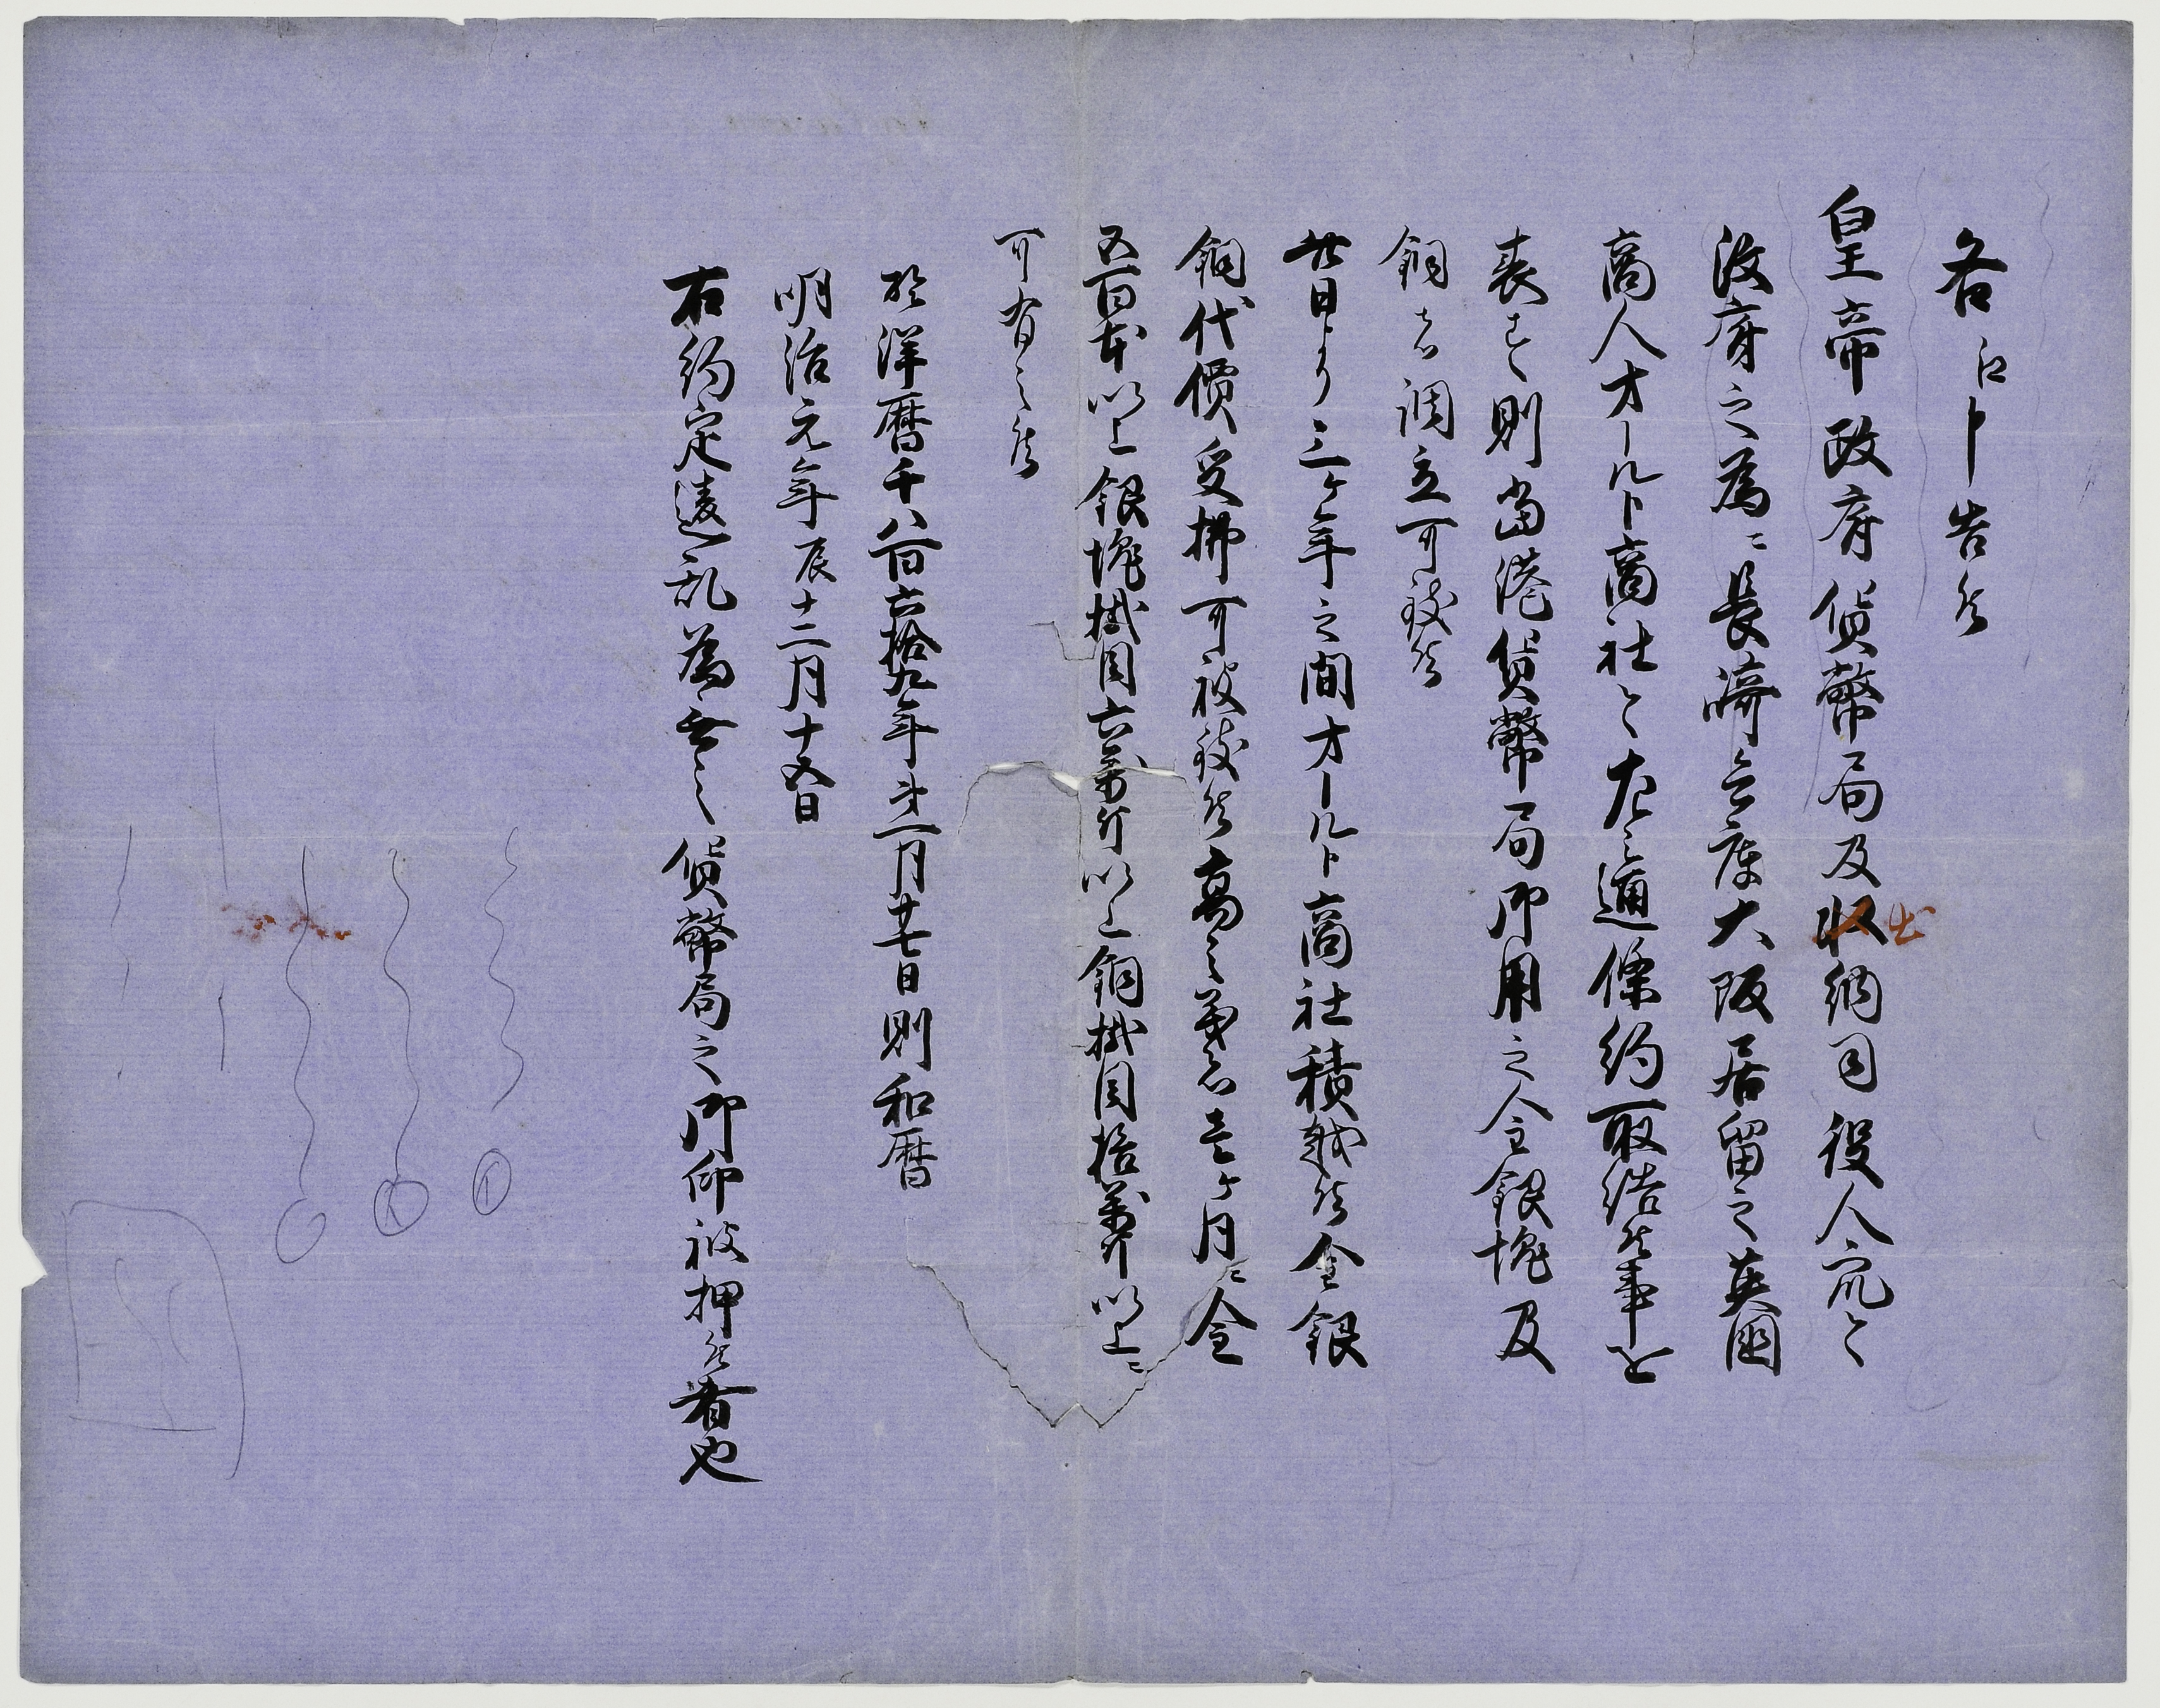 各江申告候
皇帝政府貨幣局及収出納司役人衆と
政府之為ニ長崎兵庫大阪居留之英国
商人オールト商社と左之通條約取結候事を
表す則当港貨幣局御用之金銀塊及
銅を調立可致候
此日より三ケ年之間オールト商社積越候金銀
銅代價受拂可被致候高之義者壱ケ月ニ金
五百本以上銀塊掛目六萬斤以上銅掛目拾萬斤以上ニ
可有之候
於洋暦千八百六拾九年第一月廿七日則和暦
明治元年辰十二月十五日
右約定違乱為無之貨幣局之御印被押候者也